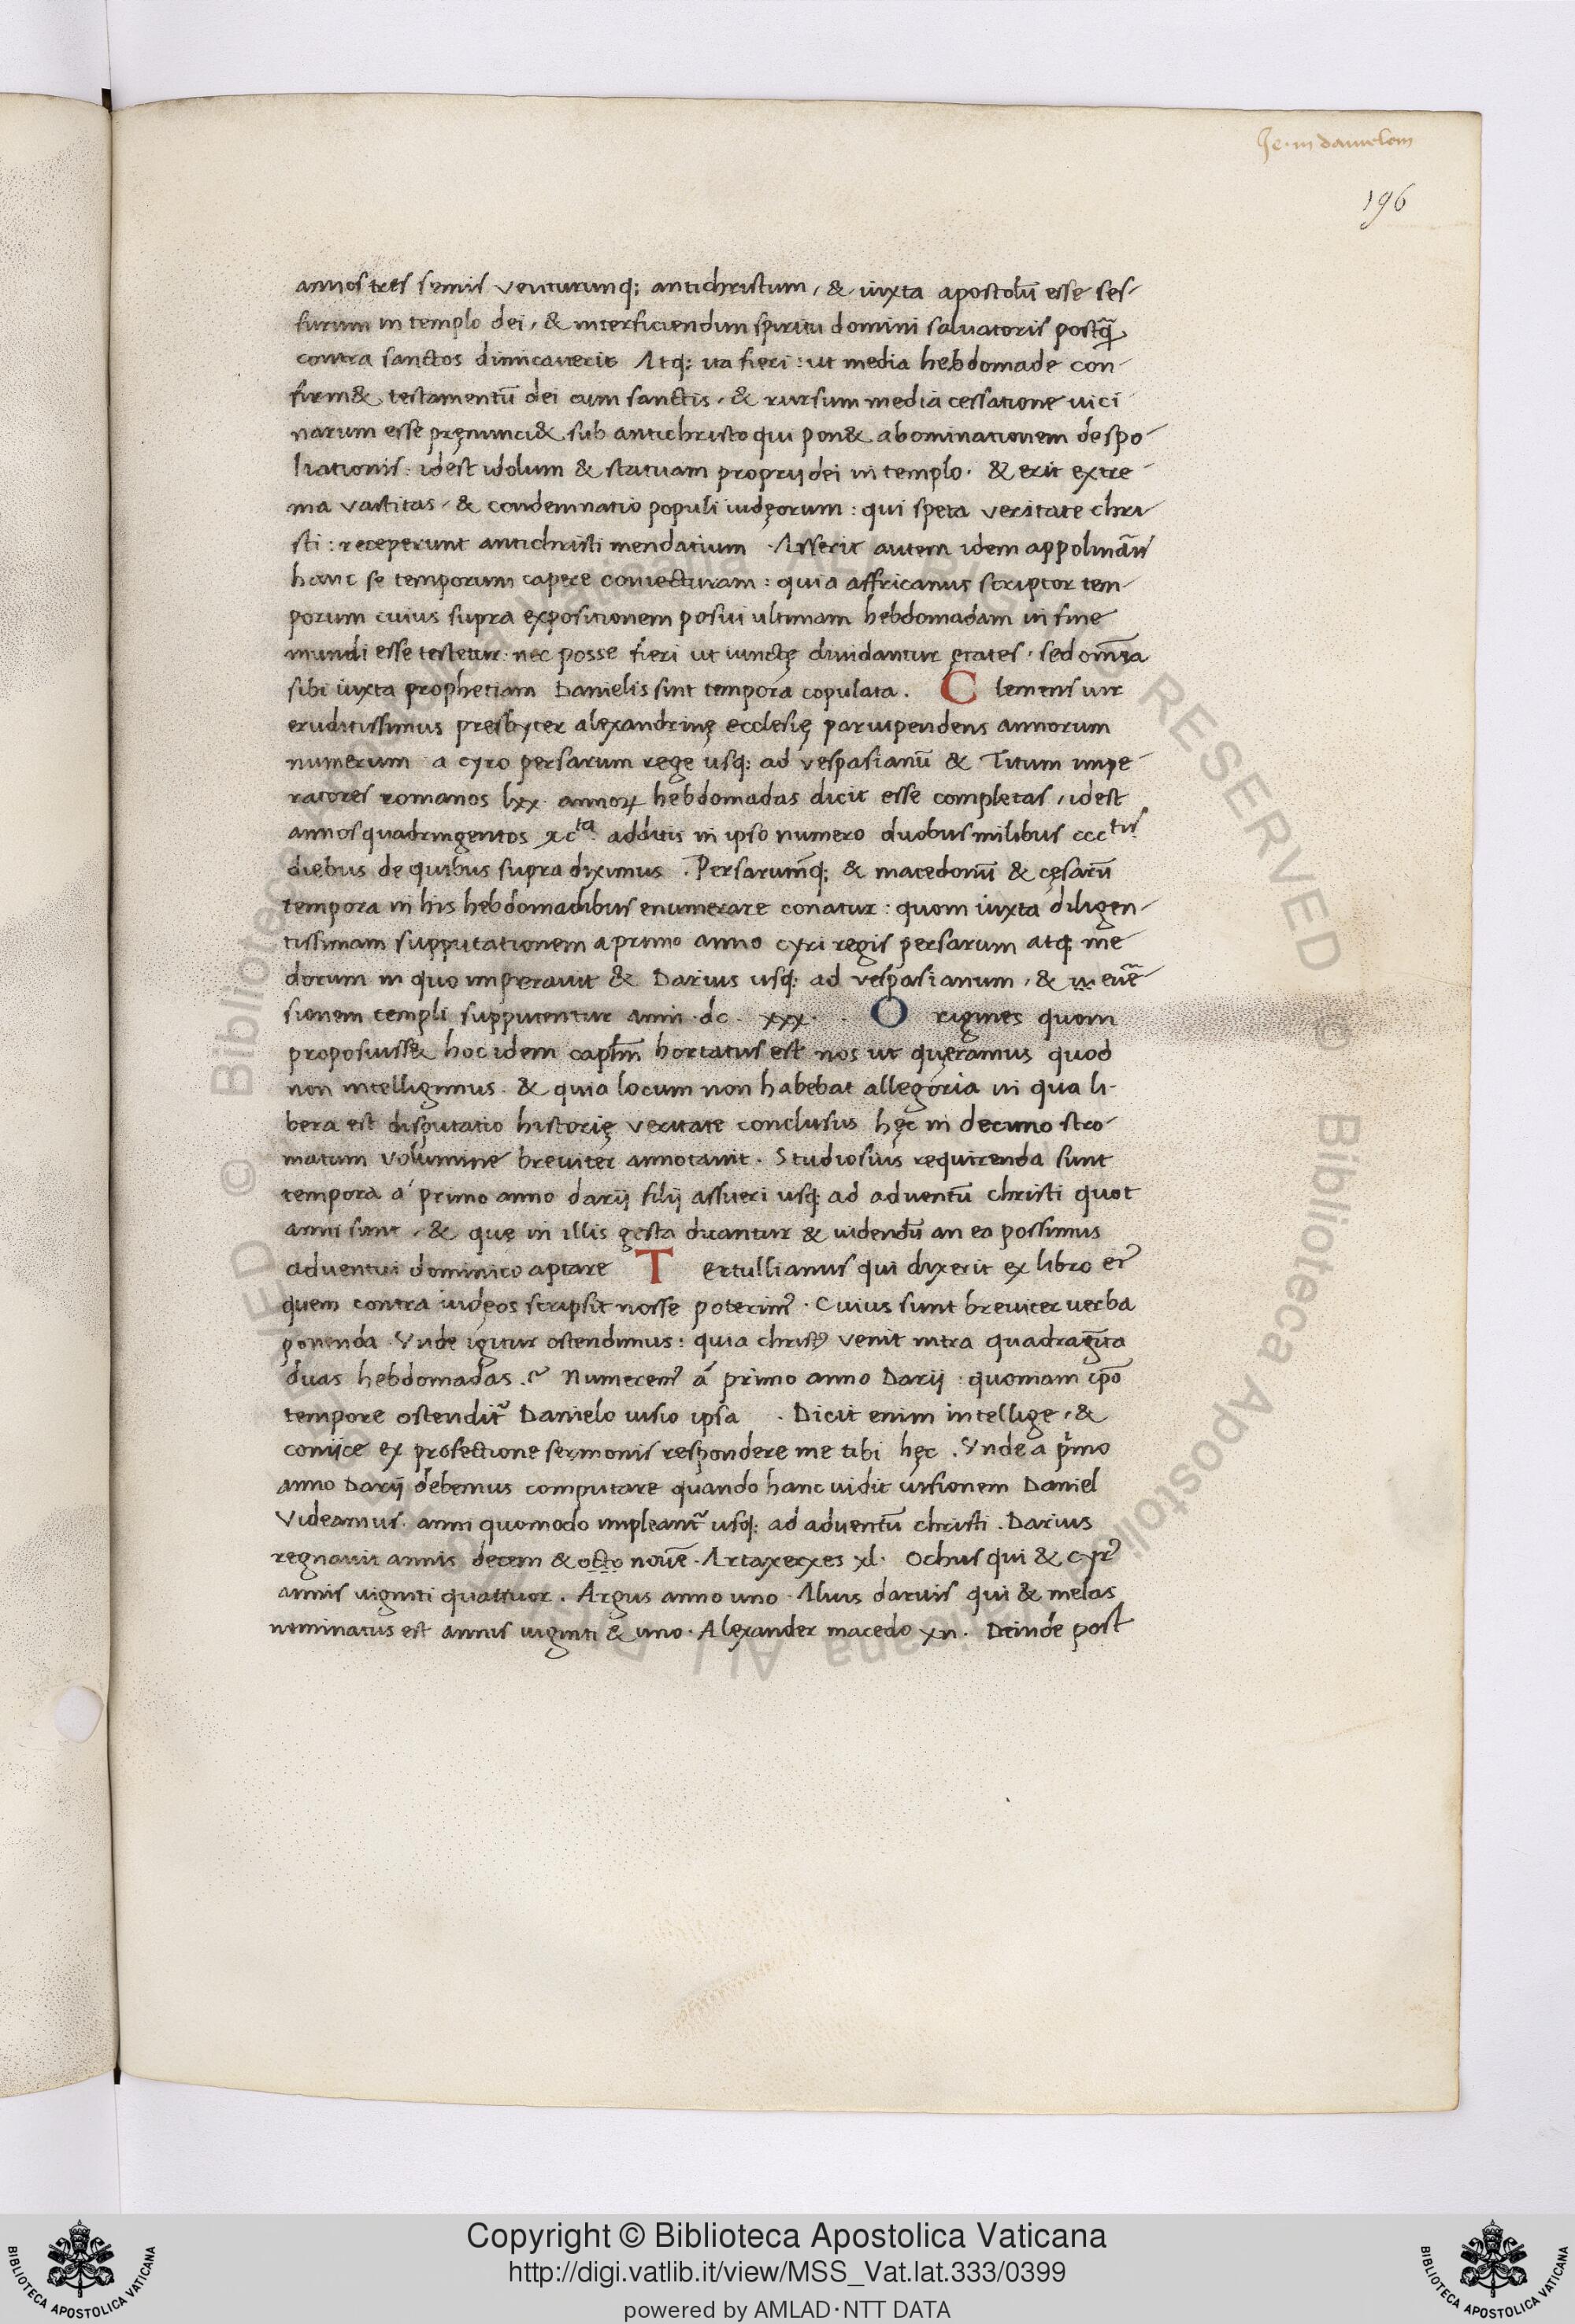 Je. in danielem
196
annos tres semis venturumq; antichristum, & iuxta apostolū esse ses-
surum in templo dei, & interficiendum spiritu domini saluatoris postq̄
contra sanctos dimicauerit Atq: ita fieri: ut media hebdomade con-
firm& testamentū dei cum sanctis, & rursum media cessatione uici
narum esse pręnunci& sub antichristo qui pon& abominationem despo-
liationis: idest idolum & statuam proprij dei in templo. & erit extre-
ma vastitas, & condemnatio populi iudęorum: qui speta veritate chri-
sti: receperunt antichristi mendatium. Asserit autem idem appolinariꝰ
hanc se temporum capere coniecturam: quia affricanus scriptor tem-
porum cuius supra expositionem posui ultimam hebdomadam in fine
mundi esse testetur: nec posse fieri ut iunctę diuidantur ętates, sed omīa
sibi iuxta prophetiam Danielis sint tempora copulata. Clemens uir
eruditissimus presbyter alexandrinę ecclesię paruipendens annorum
numerum a cyro persarum rege usq: ad vespasianū & Titum impe-
ratores romanos lxx. annoꝝ hebdomadas dicit esse completas, idest
annos quadringentos xcᵗᵃ. additis in ipso numero duobus milibus cccᵗⁱˢ
diebus de quibus supra diximus. Persarumq; & macedonū & cęsarū
tempora in his hebdomadibus enumerare conatur: quom iuxta diligen-
tissimam supputationem a primo anno cyri regis persarum atq; me
dorum in quo imperauit & Darius usq: ad vespasianum, & in euē-
sionem templi supputentur anni .dc. xxx. . Origines quom
proposuiss& hoc idem caplm̄ hortatus est nos ut quęramus quod
non intelligimus. & quia locum non habebat allegoria in qua li-
bera est disputatio historię veritate conclusus hęc in decimo stro-
matum volumine breuiter annotauit. Studiosius requirenda sunt
tempora á primo anno darij filij assueri usq; ad aduentū christi quot
anni sunt, & quę in illis gesta dicantur & uidendū an ea possimus
aduentui dominico aptare Tertullianus qui dixerit ex libro eiꝰ
quem contra iudęos scripsit nosse poterimꝰ. Cuius sunt breuiter verba
ponenda. Vnde igitur ostendimus: quia christꝰ venit intra quadragīta
duas hebdomadas. Numeremꝰ á primo anno Darij: quoniam ip̄o
tempore ostendit᷑ Danielo uisio ipsa. Dicit enim intellige, &
coniice ex profectione sermonis respondere me tibi hęc. Vnde a p̓mo
anno Darij debemus computare quando hanc uidit uisionem Daniel
Videamus. anni quomodo impleant᷑ usq: ad aduentū christi. Darius
regnauit annis decem & octo nouē. Artaxerxes xl. Ochus qui & cyrꝰ
annis uiginti quattuor. Argus anno uno. Alius darius qui & melas
nominatus est annis uiginti & uno. Alexander macedo xn. Deinde post
Copyright © Biblioteca Apostolica Vaticana
http://digi.vatlib.it/view/MSS_Vat.lat.333/0399
powered by AMLAD·NTT DATA